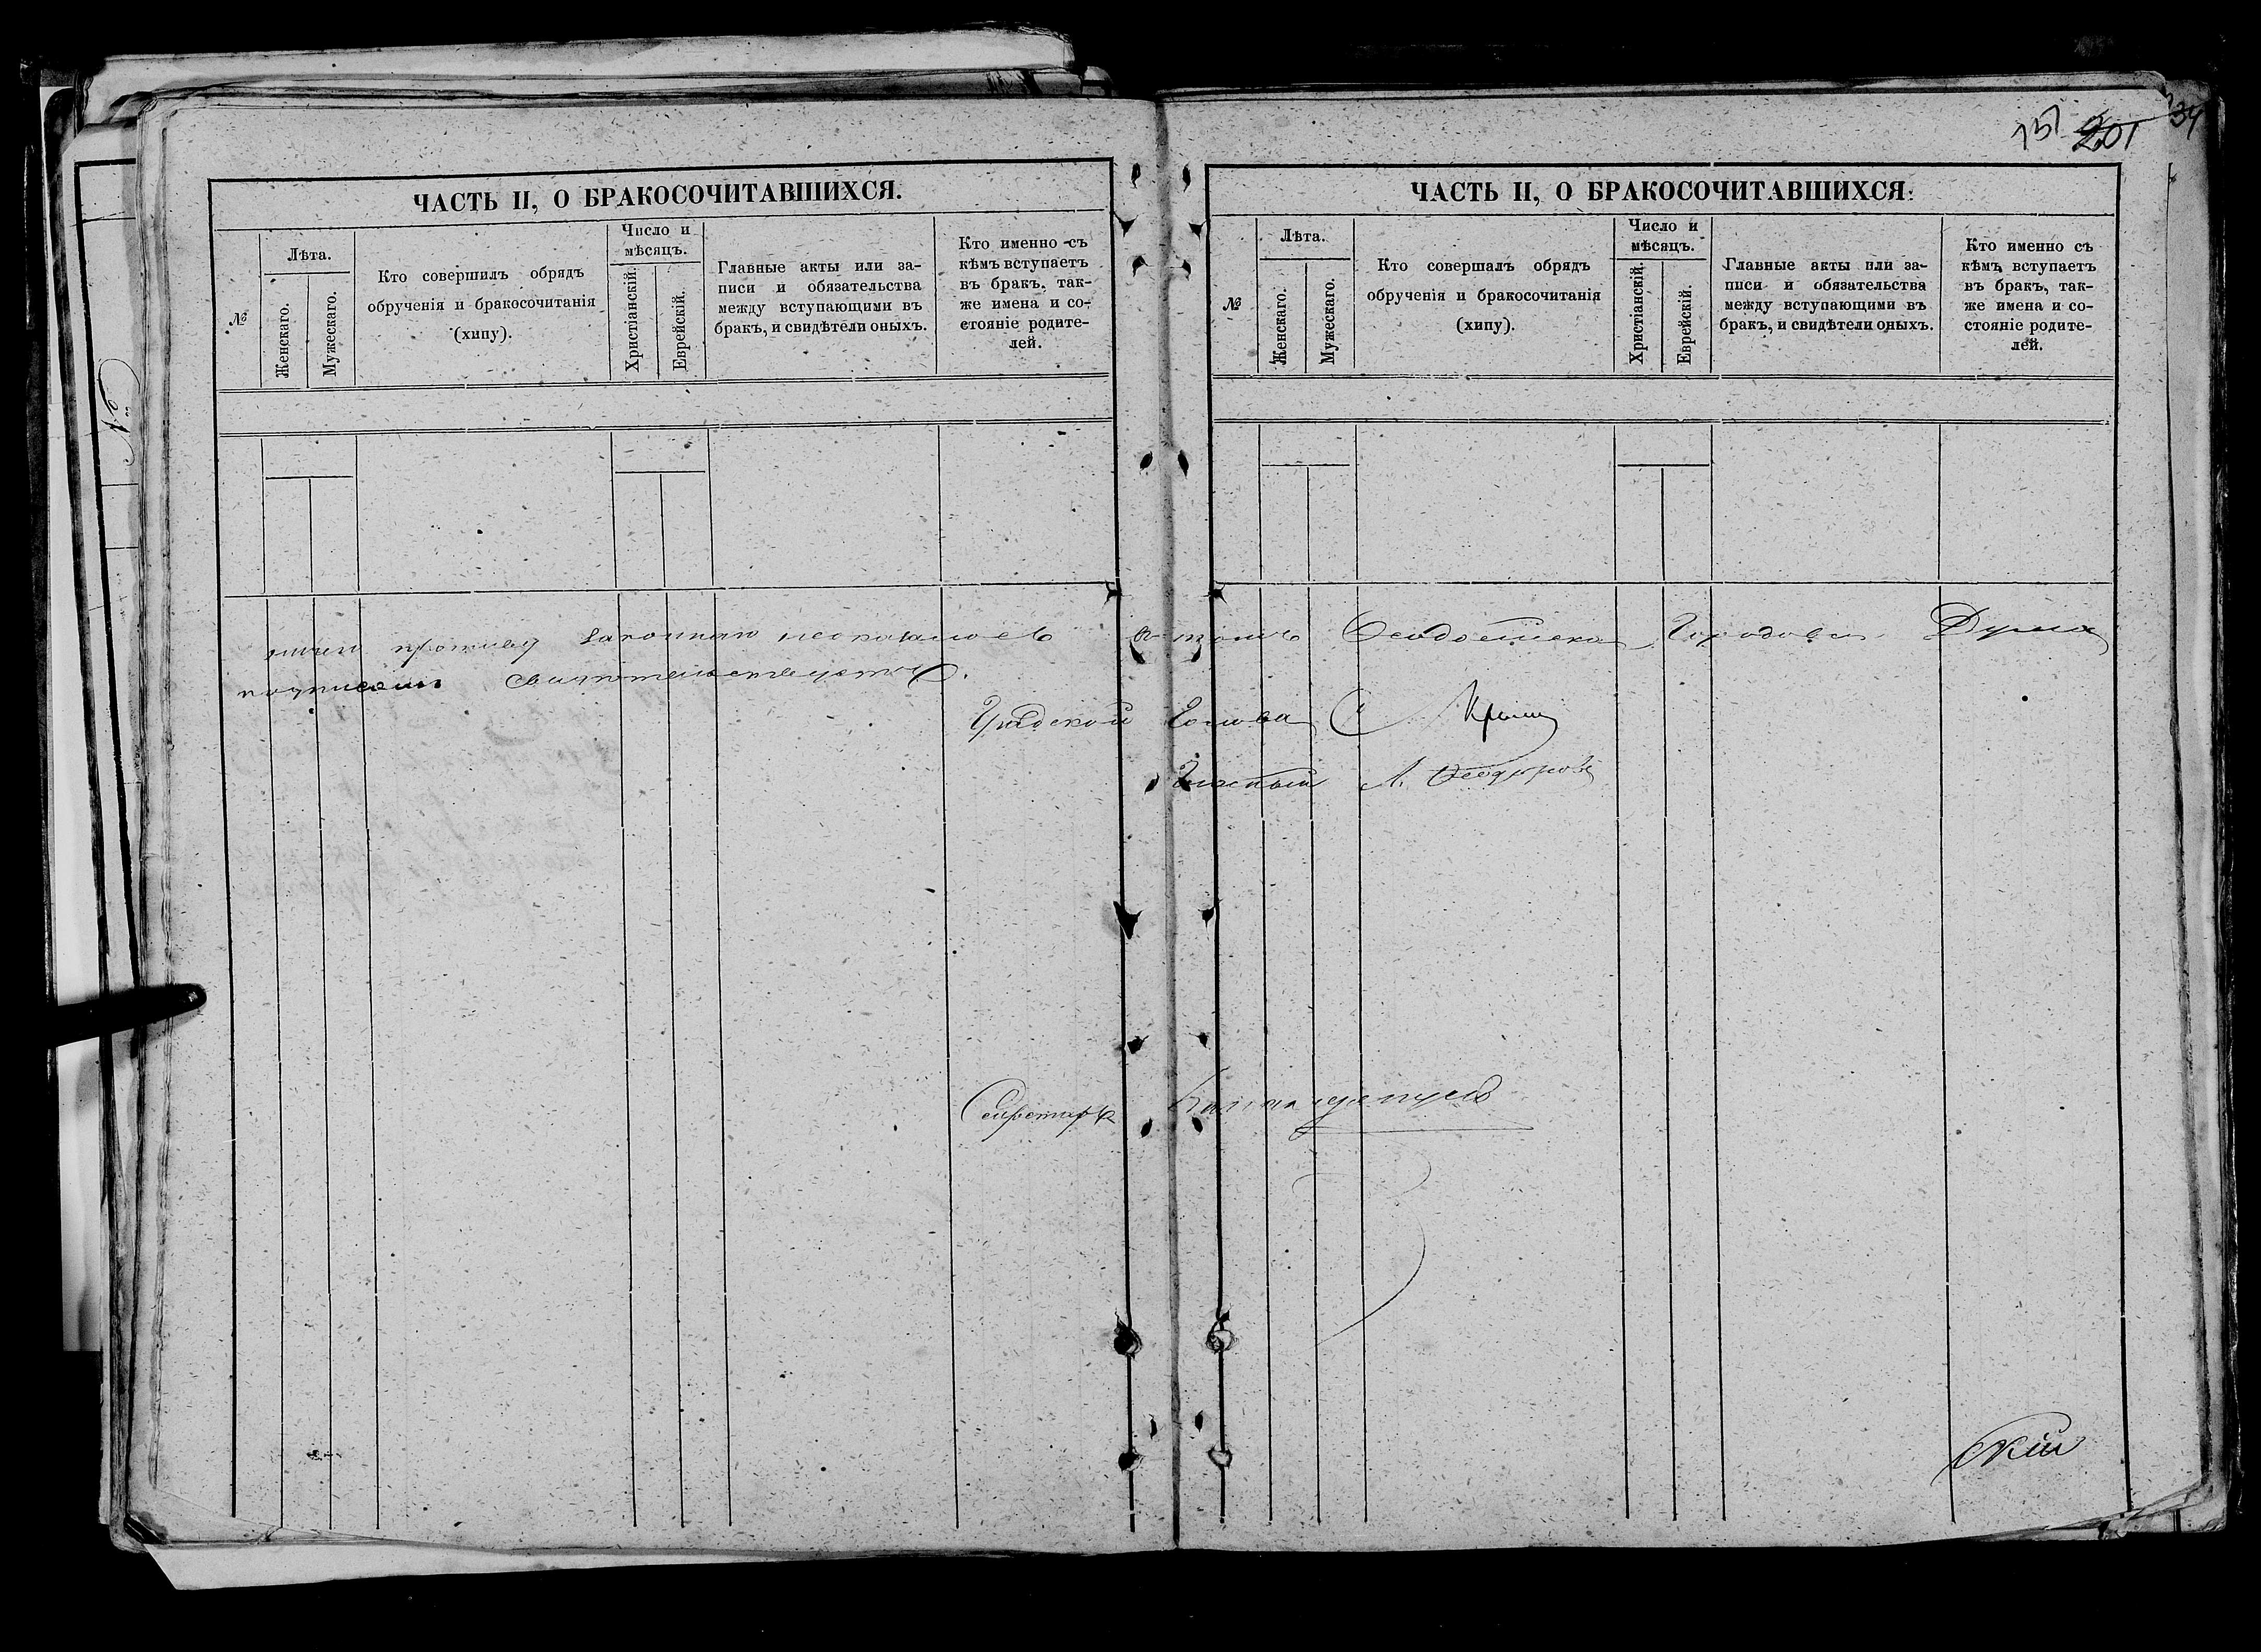 151 201 34
ЧАСТЬ II, О БРАКОСОЧИТАВШИХСЯ.
№
Лѣта.
Женскаго.
Мужескаго.
Кто совершилъ обрядъ
обрученія и бракосочитанія
(хипу).
Число и
мѣсяцъ.
Христіанскій.
Еврейскій.
Главные акты или за-
писи и обязательства
между вступающими въ
бракъ, и свидѣтели оныхъ.
Кто именно съ
кѣмъ вступаетъ
въ бракъ, так-
же имена и со-
стояніе родите-
лей.
ЧАСТЬ II, О БРАКОСОЧИТАВШИХСЯ.
№
Лѣта.
Женскаго.
Мужескаго.
Кто совершалъ обрядъ
обрученія и бракосочитанія
(хипу).
Число и
мѣсяцъ.
Христіанскій.
Еврейскій.
Главные акты или за-
писи и обязательства
между вступающими въ
бракъ, и свидѣтели оныхъ.
Кто именно съ
кѣмъ вступаетъ
въ бракъ, так-
же имена и со-
стояніе родите-
лей.
противу законнаго неоказалось в томъ Ѳеодосійская Городовая Дума
подписомъ свидѣтельствуетъ.
Градской Голова С Крымъ
Гласный Л. Ѳеодоровъ
Секретарь
скій